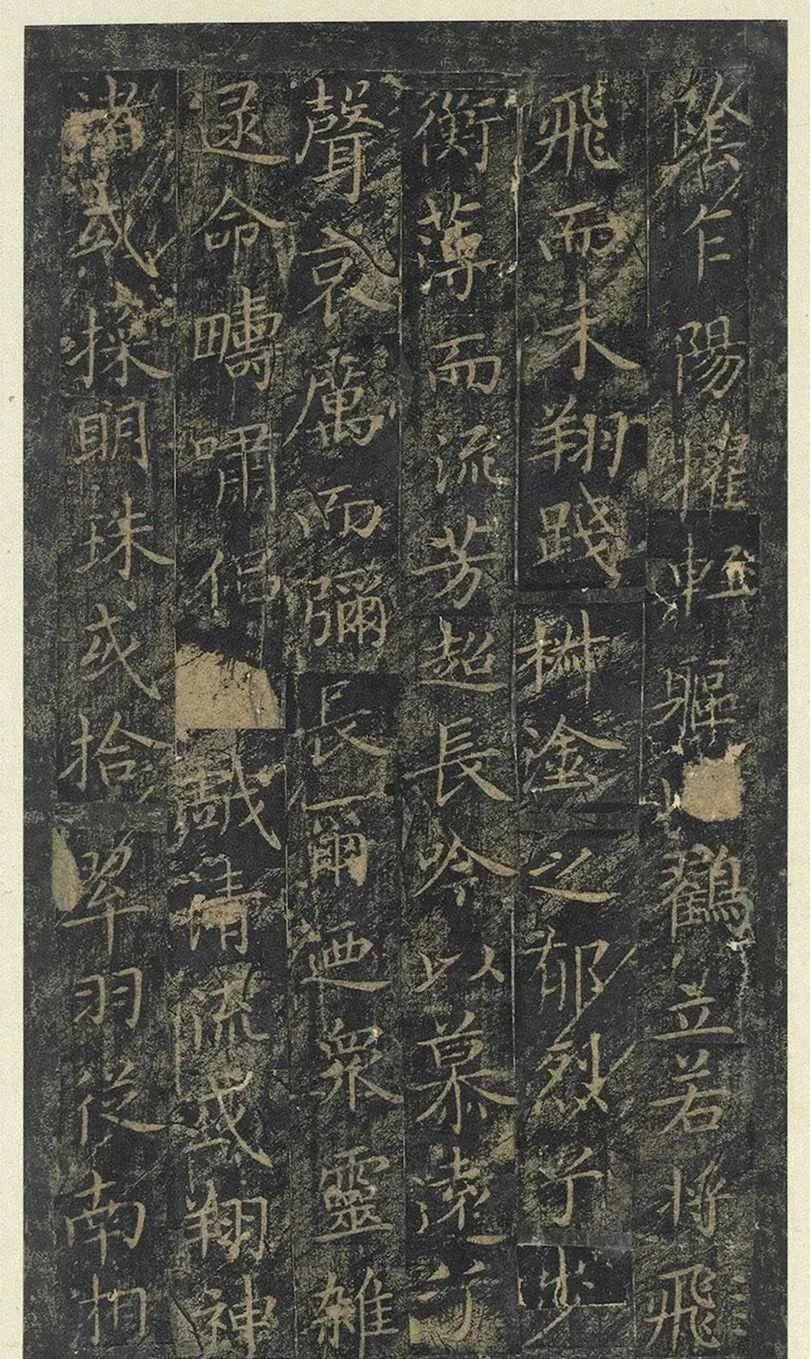 陰乍陽擢輕軀鶴立若将飛
飛而未翔踐椒塗之郁烈兮步
衡薄而流芳超長吟以慕遠兮
聲哀厲而彌長爾迺衆靈雜
遝命疇嘯侶戲清流或翔神
渚或採明珠或拾翠羽從南湘